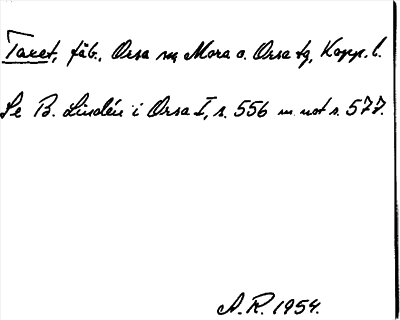 Taxet, fäb., Orsa sn, Mora o. Orsa tg, Kopp. l.
Se B. Lindén i Orsa I, s. 556 m. not s. 577.
A. R. 1954.